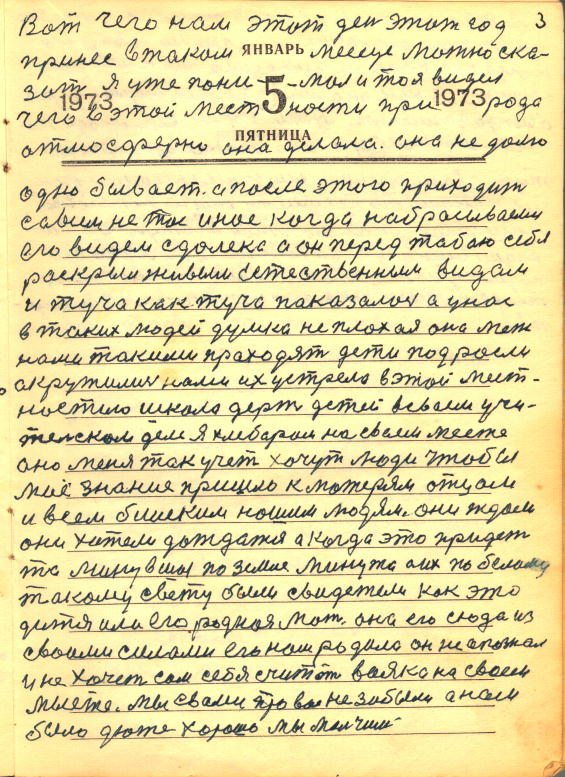 3
Вот чего нам этот ден этот год
принес в таком ЯНВАРЬ месеце можно ска-
зат я уже пони- -мал и тоя видел
1973 5 1973
чего в этой мест ности при рода
ПЯТНИЦА
атмосферно она делала. она не долго
одно бывает. а после этого приходит
савсем не так иное когда набрасываеш
его видем сдолека а он перед табаю себя
раскрыл живым естественным видам
и туча как туча паказалас а унас
в таких людей думка не плохая она меж
нами такими праходят дети подросли
акружилис нами их устрела в этой мест-
ностило школа держ детей в сваем учи-
тельском деле Я хлебаром на своем месте
ано меня так учет хочут люди чтобы
маё знание пришло к матерям отцам
и всем блиским нашим людям. они ждали
они хатели дождатя а когда это придет
та минувшая по земле минута аих по белому
такому свету были свидетели как это
дитя или его родная мат. она его сюда из
своими силами его нам родила он не апознал
и не хочет сам себя считат вояка на своем
месте. мы свами про вас не забыли а нам
было дюже хорошо мы малчим